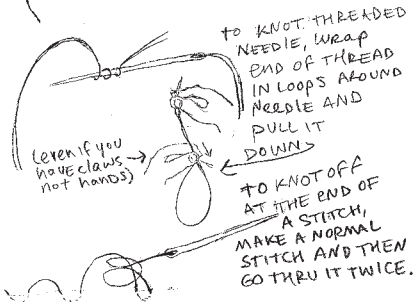 TO KNOT THREADED
NEEDLE, WRAP
END OF THREAD
IN LOOPS AROUND
NEEDLE AND
PULL IT
DOWN
(even if you
have claws
not hands)
TO KNOT OFF
AT THE END OF
A STITCH,
MAKE A NORMAL
STITCH AND THEN
GO THRU IT TWICE.